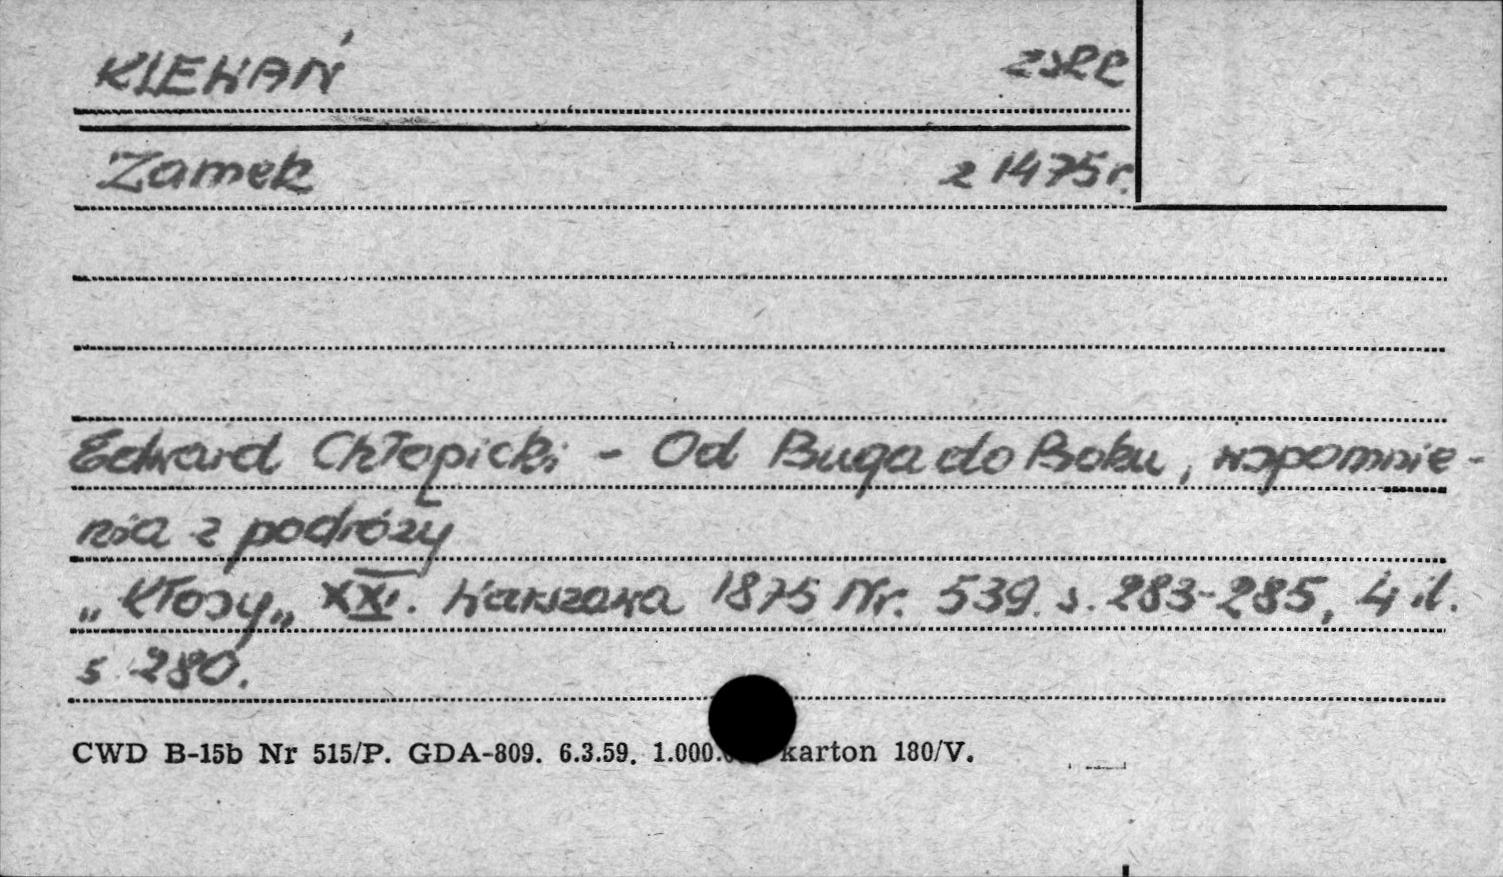 KLEWAŃ ZSRR
Zamek z 1475 r.
Edward Chłopicki - Od Buga do Bohu, wspomnie-
nia z podróży
"Kłosy„ XXI. Warszawa 1875 Nr. 539. s. 283-285, 4 il.
s 280.
CWD B-15b Nr 515/P. GDA-809. 6.3.59. 1.000. karton 180/V.